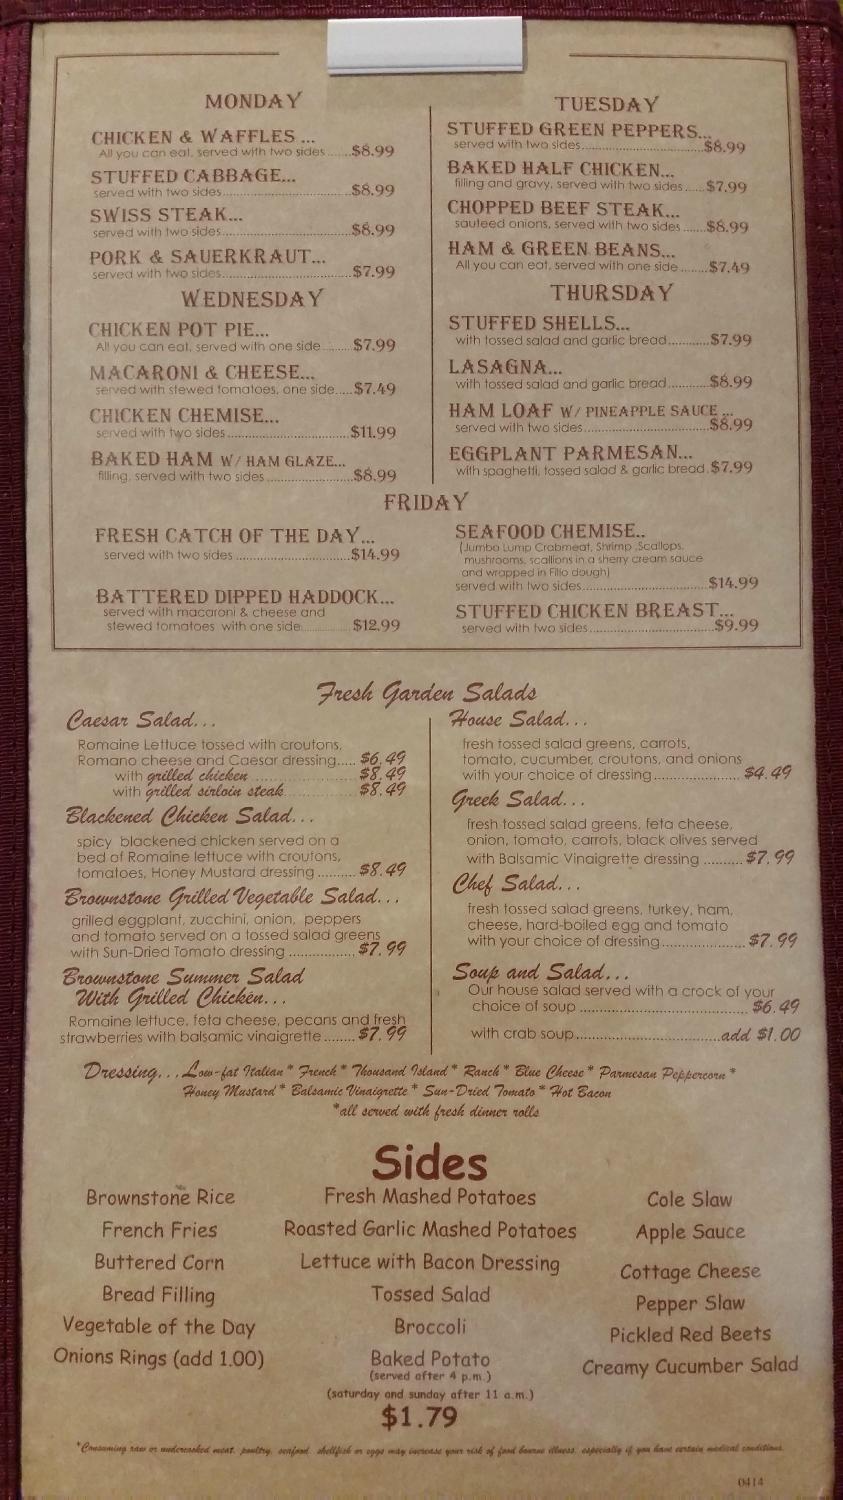 MONDAY
CHICKEN & WAFFLES ...
All you can eat, served with two sides ......$8.99
STUFFED CABBAGE...
served with two sides...............................$8.99
SWISS STEAK...
served with two sides...............................$8.99
PORK & SAUERKRAUT...
served with two sides...............................$7.99
TUESDAY
STUFFED GREEN PEPPERS...
served with two sides...............................$8.99
BAKED HALF CHICKEN...
filling and gravy, served with two sides .....$7.99
CHOPPED BEEF STEAK...
sauteed onions, served with two sides ......$8.99
HAM & GREEN BEANS...
All you can eat, served with one side .......$7.49
WEDNESDAY
CHICKEN POT PIE...
All you can eat, served with one side ........$7.99
MACARONI & CHEESE...
served with stewed tomatoes, one side.....$7.49
CHICKEN CHEMISE...
served with two sides.............................$11.99
BAKED HAM W/ HAM GLAZE...
filling, served with two sides ....................$8.99
THURSDAY
STUFFED SHELLS...
with tossed salad and garlic bread...........$7.99
LASAGNA...
with tossed salad and garlic bread...........$8.99
HAM LOAF W/ PINEAPPLE SAUCE ...
served with two sides...............................$8.99
EGGPLANT PARMESAN...
with spaghetti, tossed salad & garlic bread .$7.99
FRIDAY
FRESH CATCH OF THE DAY...
served with two sides ...........................$14.99
BATTERED DIPPED HADDOCK...
served with macaroni & cheese and
stewed tomatoes with one side............. $12.99
SEAFOOD CHEMISE..
(Jumbo Lump Crabmeat, Shrimp ,Scallops,
mushrooms, scallions in a sherry cream sauce
and wrapped in Fillo dough)
served with two sides..............................$14.99
STUFFED CHICKEN BREAST...
served with two sides..............................$9.99
Fresh Garden Salads
Caesar Salad...
Romaine Lettuce tossed with croutons,
Romano cheese and Caesar dressing..... $6.49
with grilled chicken ........................ $8.49
with grilled sirloin steak ................. $8.49
Blackened Chicken Salad...
spicy blackened chicken served on a
bed of Romaine lettuce with croutons,
tomatoes, Honey Mustard dressing ......... $8.49
Brownstone Grilled Vegetable Salad...
grilled eggplant, zucchini, onion, peppers
and tomato served on a tossed salad greens
with Sun-Dried Tomato dressing ............... $7.99
Brownstone Summer Salad
With Grilled Chicken...
Romaine lettuce, feta cheese, pecans and fresh
strawberries with balsamic vinaigrette ....... $7.99
House Salad...
fresh tossed salad greens, carrots,
tomato, cucumber, croutons, and onions
with your choice of dressing..................... $4.49
Greek Salad...
fresh tossed salad greens, feta cheese,
onion, tomato, carrots, black olives served
with Balsamic Vinaigrette dressing ......... $7.99
Chef Salad...
fresh tossed salad greens, turkey, ham,
cheese, hard-boiled egg and tomato
with your choice of dressing.................... $7.99
Soup and Salad...
Our house salad served with a crock of your
choice of soup ........................................ $6.49
with crab soup...................................add $1.00
Dressing...Low-fat Italian * French * Thousand Island * Ranch * Blue Cheese * Parmesan Peppercorn *
Honey Mustard * Balsamic Vinaigrette * Sun-Dried Tomato * Hot Bacon
*all served with fresh dinner rolls
Sides
Brownstone Rice
French Fries
Buttered Corn
Bread Filling
Vegetable of the Day
Onions Rings (add 1.00)
Fresh Mashed Potatoes
Roasted Garlic Mashed Potatoes
Lettuce with Bacon Dressing
Tossed Salad
Broccoli
Baked Potato
(served after 4 p.m.)
(saturday and sunday after 11 a.m.)
$1.79
Cole Slaw
Apple Sauce
Cottage Cheese
Pepper Slaw
Pickled Red Beets
Creamy Cucumber Salad
*Consuming raw or undercooked meat, poultry, seafood, shellfish or eggs may increase your risk of food bourne illness, especially if you have certain medical conditions.
0414